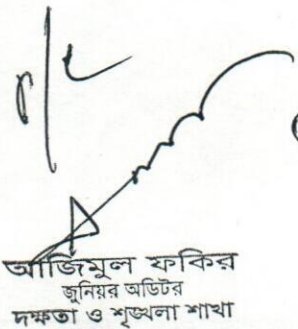 আজিমুল ফকির
জুনিয়র অডিটর
দক্ষতা ও শৃঙ্খলা শাখা